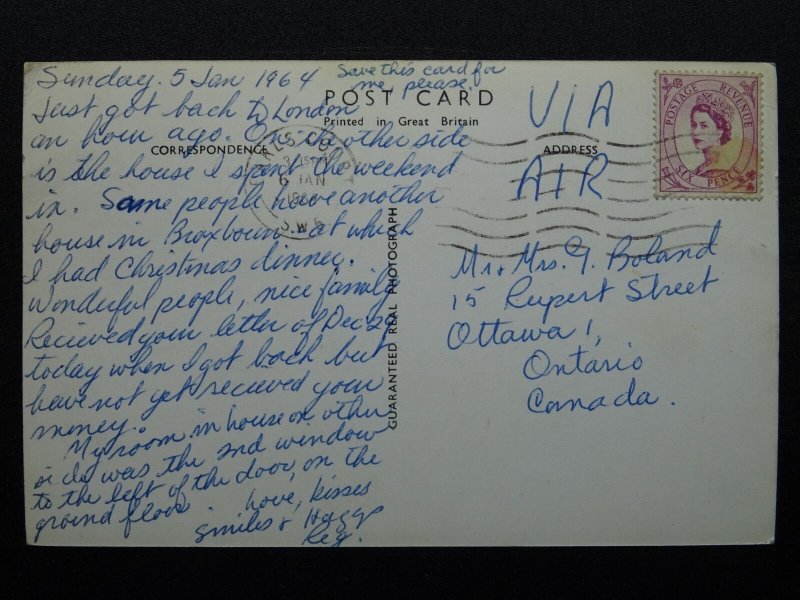 Sunday. 5 Jan 1964
Save this card for
me, please.
Just got back to London
an hour ago. On the other side
is the house I spent the weekend
in. Same people have another
house in Broxbourn at which
I had Christmas dinner.
Wonderful people, nice family.
Recieved your letter of Dec 30
today when I got back but
have not yet recieved your
money.
My room in house on other
side was the 2nd window
to the left of the door, on the
ground floor.
Love, kisses
smiles & Huggs
Reg.
POST CARD
Printed in Great Britain
CORRESPONDENCE
ADDRESS
GUARANTEED REAL PHOTOGRAPH
VIA
AIR
Mr & Mrs. G. Boland
15 Rupert Street
Ottawa 1,
Ontario
Canada.
POSTAGE REVENUE
SIX PENCE
6 JAN
S.W.5